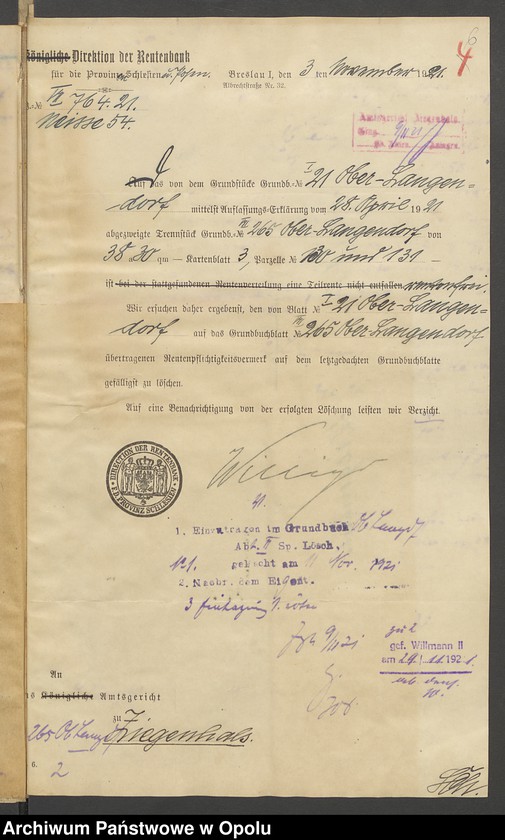 6
4
Königliche Direktion der Rentenbank
für die Provinzen Schlesien u. Posen.
Breslau I, den 3 ten November 1921.
Albrechtstraße Nr. 32.
J.-№ VI 764.21.
Neisse 54.
Amtsgericht Ziegenhals.
Eing. 9/11 21
Auf das von dem Grundstücke Grundb.-№ I 21 Ober-Langen=
dorf mittelst Auflassungs-Erklärung vom 28. April 1921
abgezweigte Trennstück Grundb.-№ VII 265 Ober-Langendorf von
38 30 qm — Kartenblatt 3, Parzelle № 130 und 131 —
ist bei der stattgefundenen Rentenverteilung eine Teilrente nicht entfallen rentenfrei.
Wir ersuchen daher ergebenst, den von Blatt № I 21 Ober-Langen=
dorf auf das Grundbuchblatt № VII 265 Ober Langendorf
übertragenen Rentenpflichtigkeitsvermerk auf dem letztgedachten Grundbuchblatte
gefälligst zu löschen.
Auf eine Benachrichtigung von der erfolgten Löschung leisten wir Verzicht.
DIRECTION DER RENTENBANK
F.D. PROVINZ SCHLESIEN
1. Einzutragen im Grundbuch Ob Langdf
Abt. II Sp. Lösch.
gelöscht am 11 Nov. 1921
2. Nachr. dem Eigent.
9/11 21
zu 2
gef. Willmann II
am 29/11.1921.
An
das Königliche Amtsgericht
zu
Ziegenhals.
265 Ob Langdf
2
6.
Archiwum Państwowe w Opolu